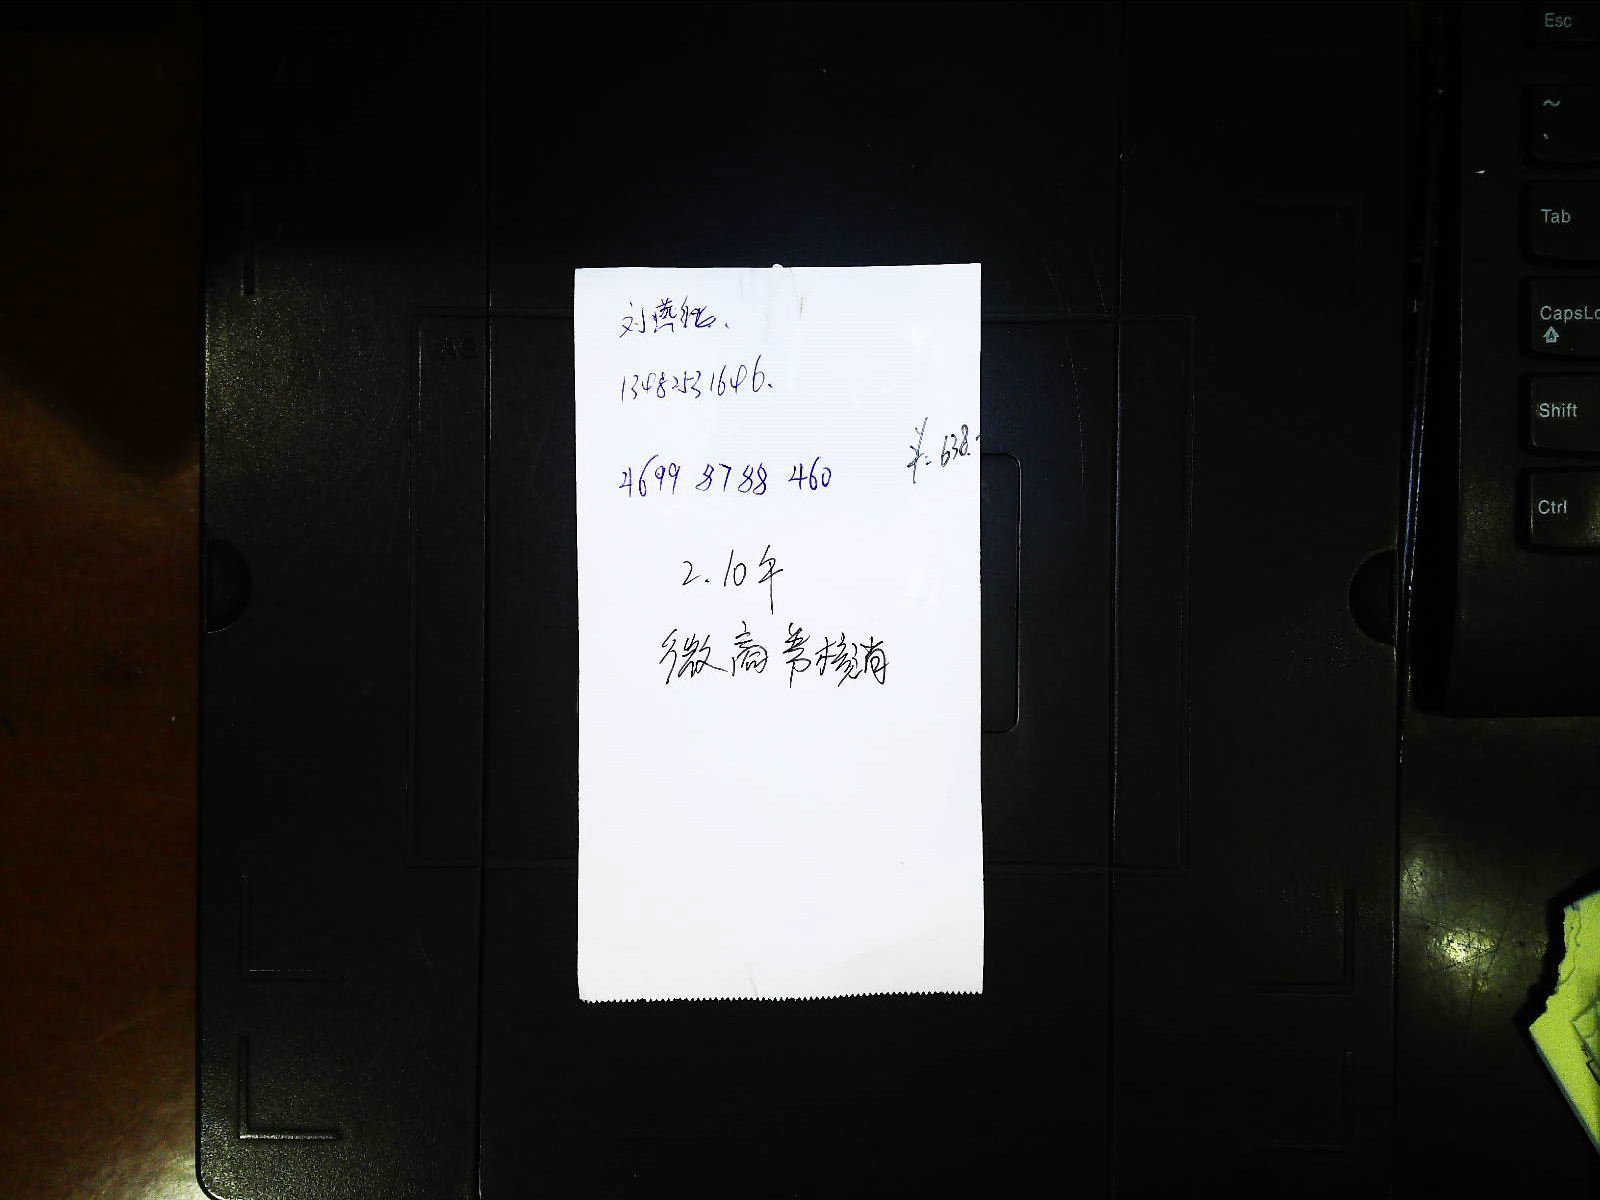 刘燕
13482531646.
¥:638.
4699 8788 460
2.10午
微商券核消
Esc
~
Tab
CapsLo
Shift
Ctrl